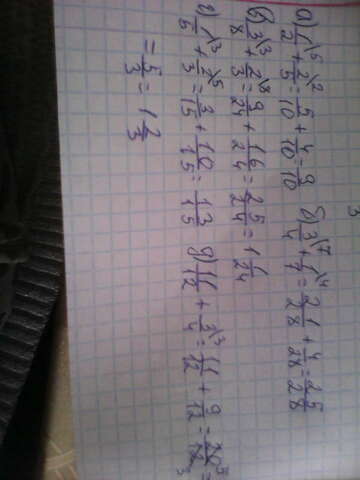 3
а) 1/2\5 + 2/5\2 = 5/10 + 4/10 = 9/10 б) 3/4\7 + 1/7\4 = 21/28 + 4/28 = 25/28
в) 3/8\3 + 2/3\8 = 9/24 + 16/24 = 25/24 = 1 1/24
г) 1/5\3 + 2/3\5 = 3/15 + 10/15 = 13/15 д) 11/12 + 3/4\3 = 11/12 + 9/12 = 20/12 5/3 =
= 5/3 = 1 2/3